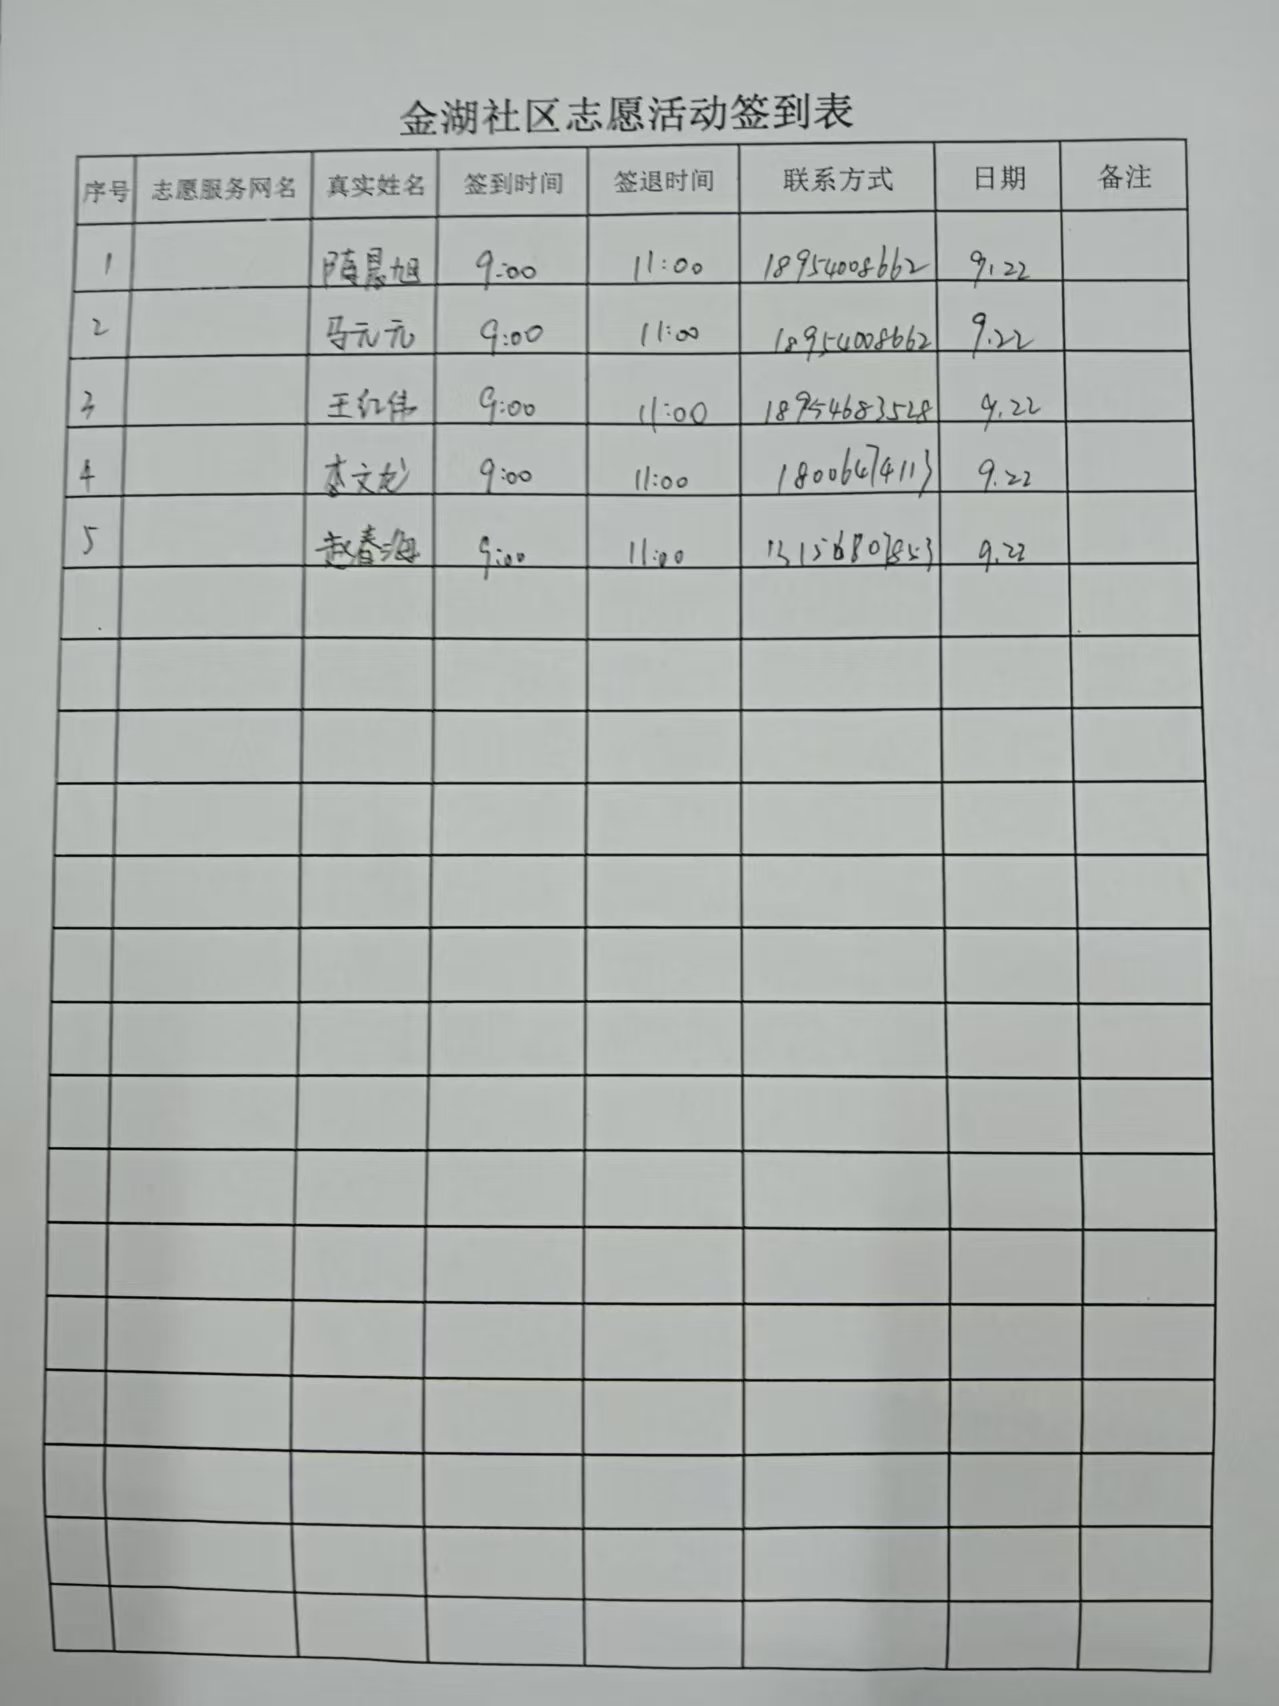 金湖社区志愿活动签到表
序号 志愿服务网名 真实姓名 签到时间 签退时间 联系方式 日期 备注
1 隋晨旭 9:00 11:00 18954008662 9.22
2 马元元 9:00 11:00 18954008662 9.22
3 王红伟 9:00 11:00 18954683528 9.22
4 李文龙 9:00 11:00 18006474113 9.22
5 赵春海 9:00 11:00 9.22